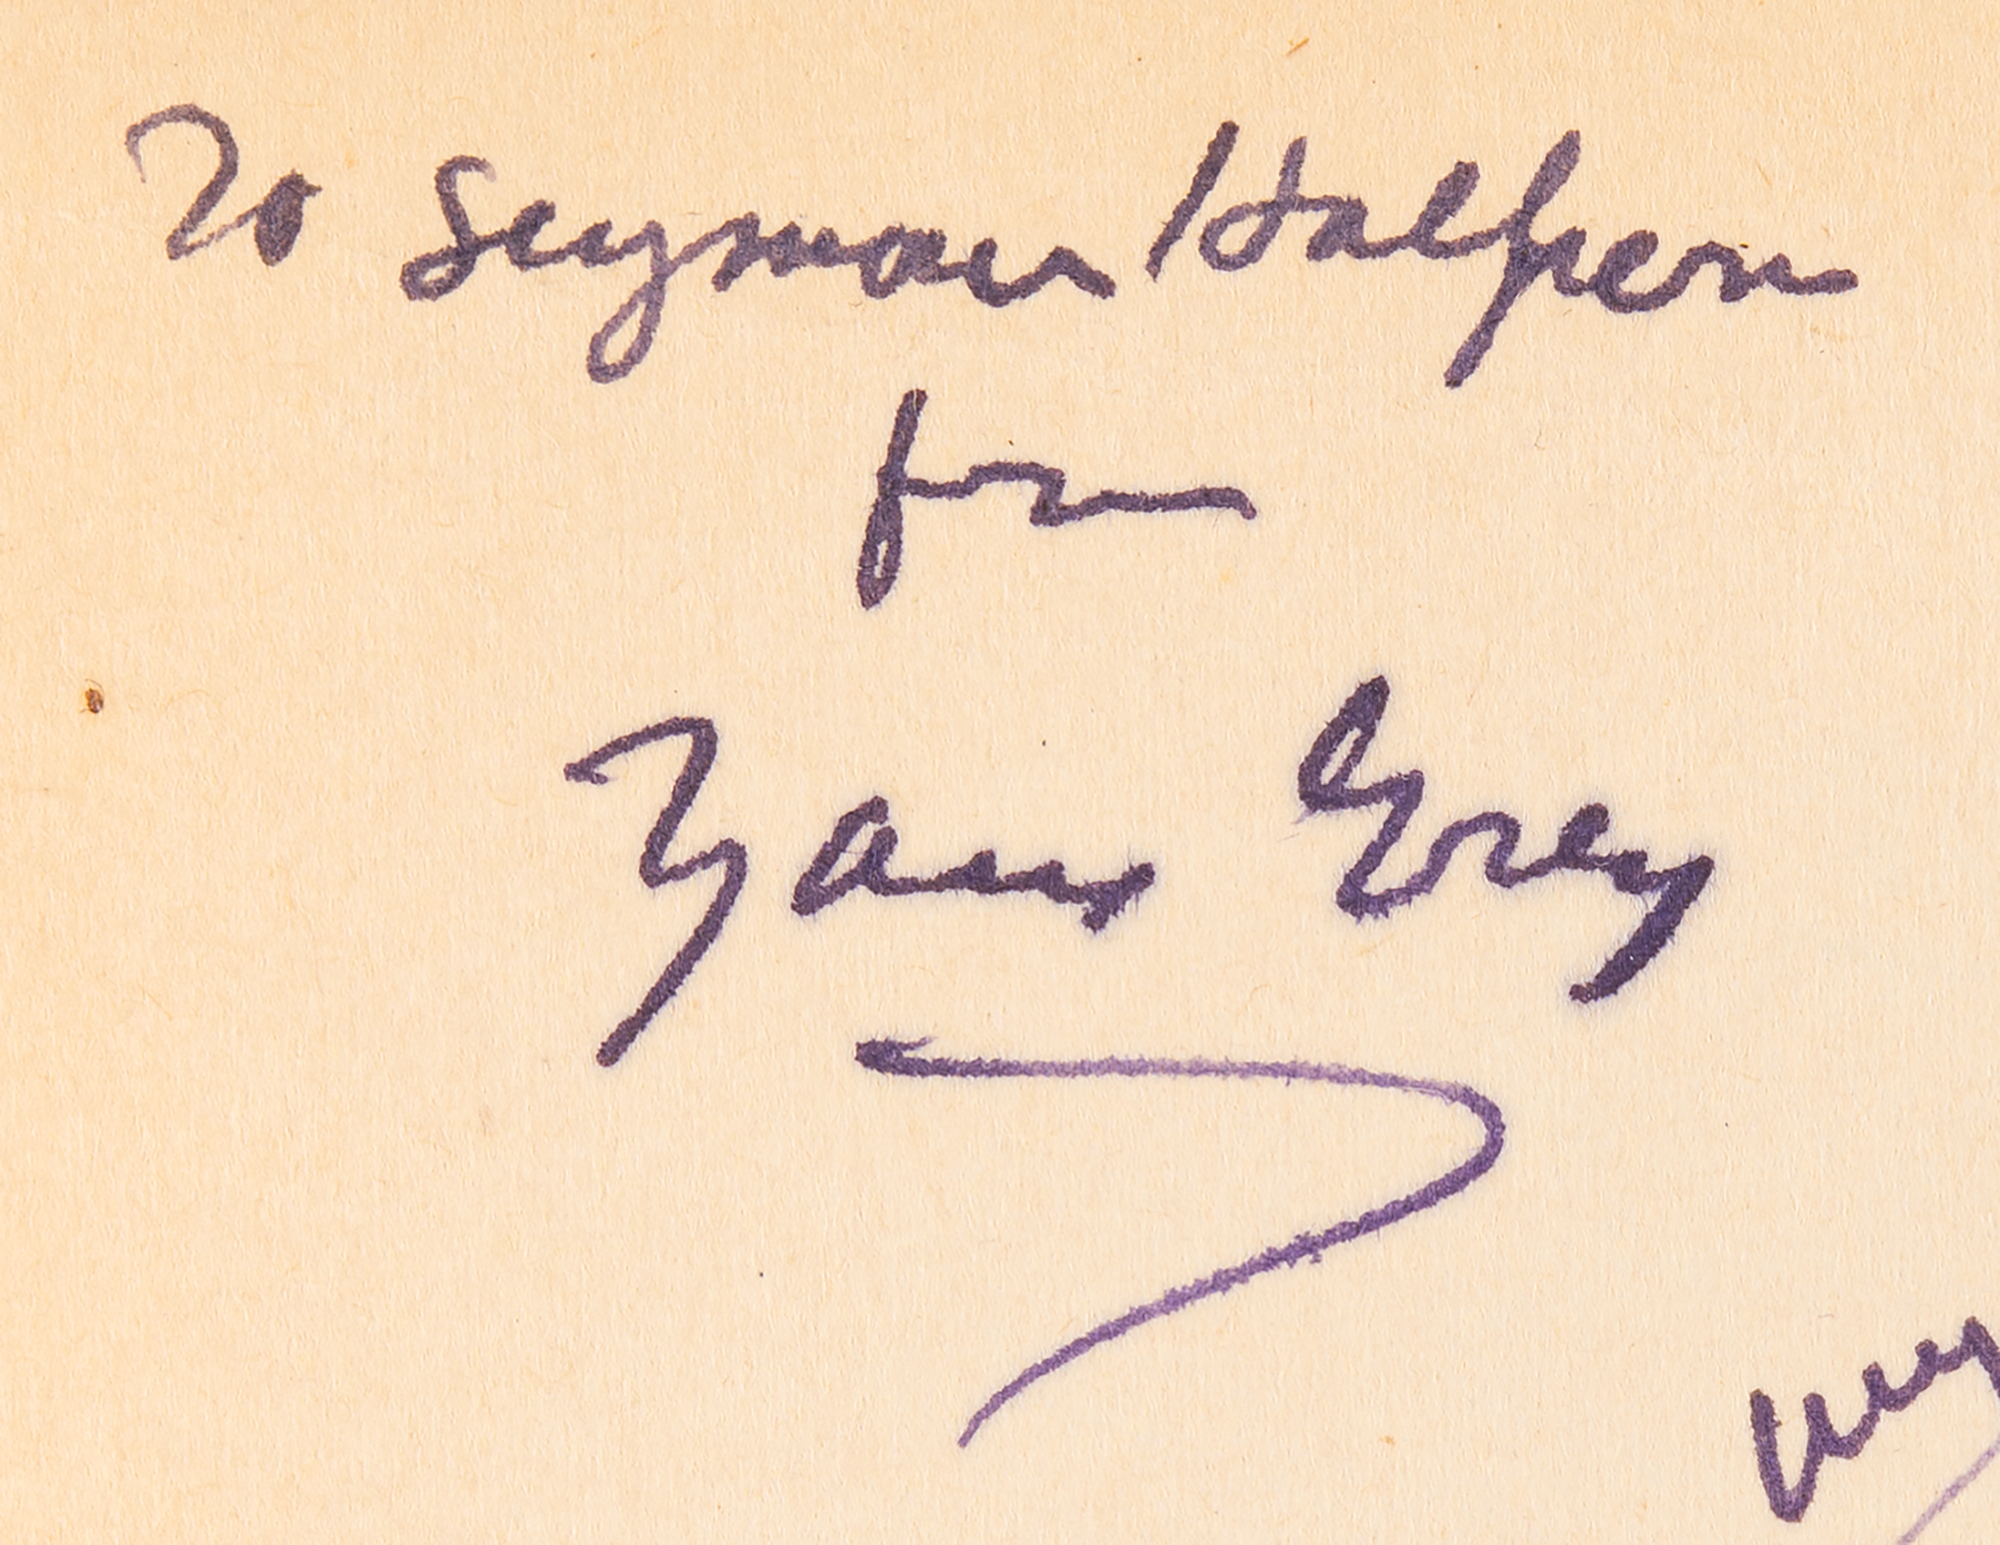 To Seymour Halpern
from
Zane Grey